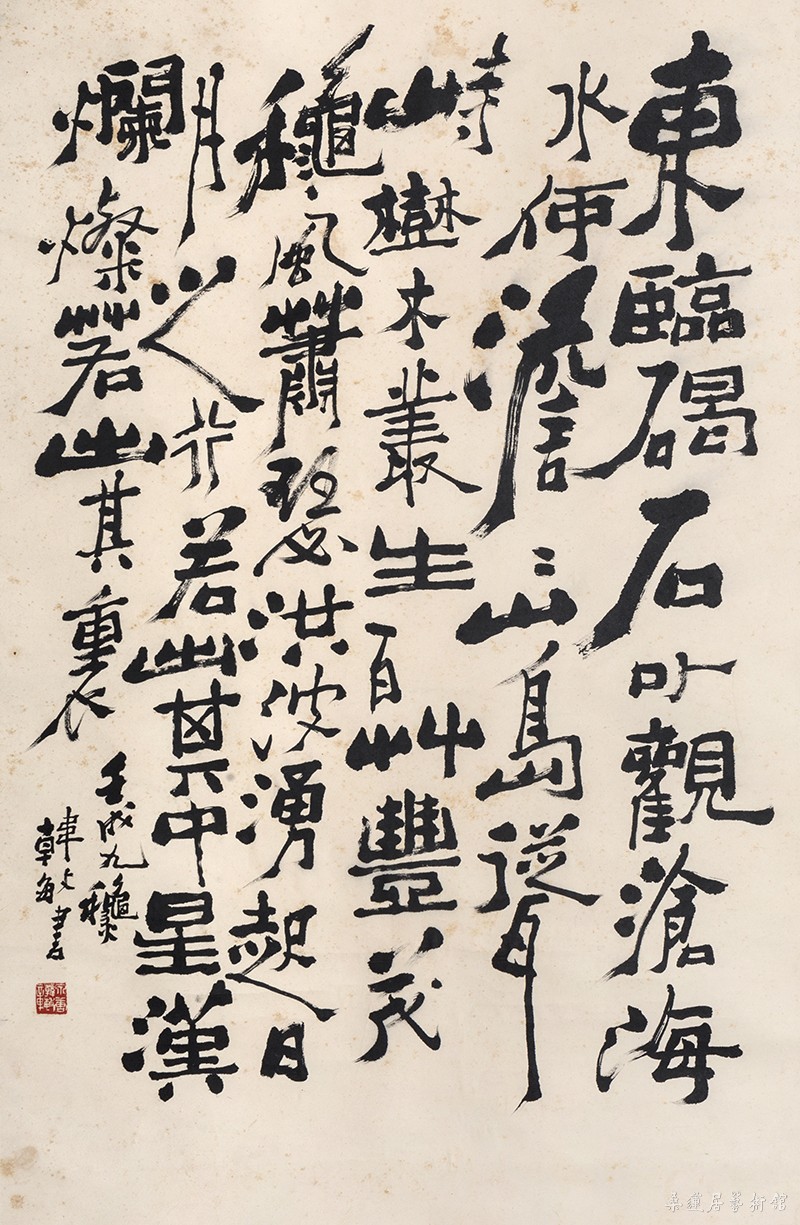 東臨碣石以觀滄海
水何澹〻山島聳
峙樹木叢生百艸豐茂
穐風蕭瑟洪波湧起日
月之行若出其中星漢
爛燦若出其裏
壬戌九穐
書
蓮居藝術館